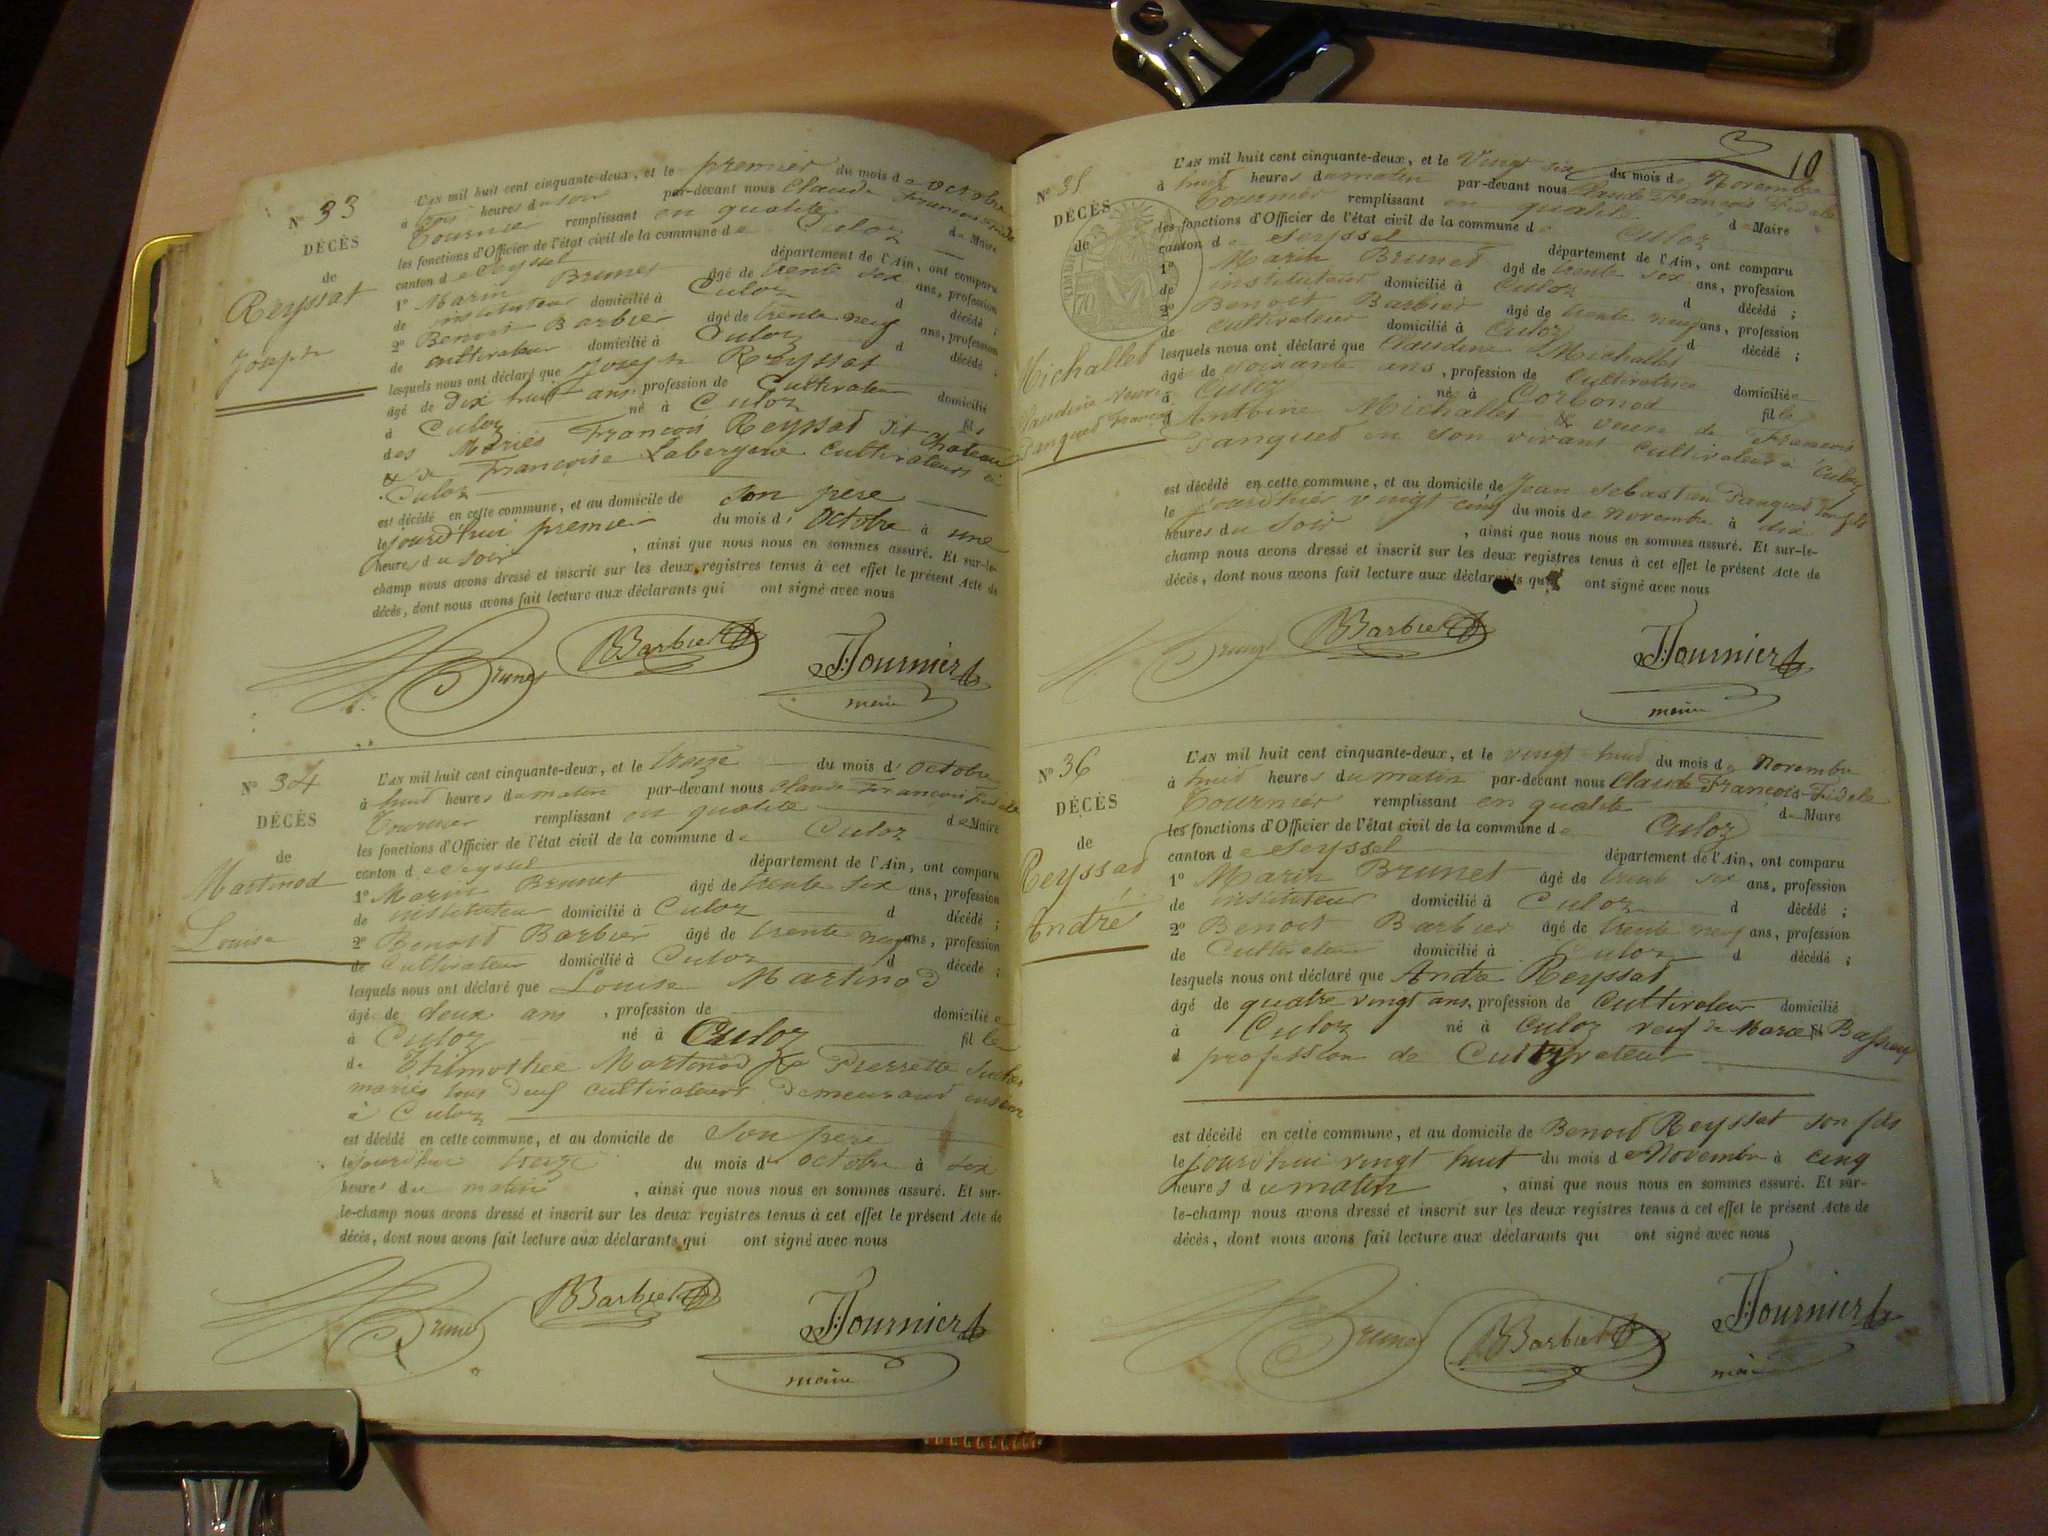 N° 33
DÉCÈS
de
Reyssat
Joseph
L'AN mil huit cent cinquante-deux, et le premier du mois d'Octobre
à trois heures du soir par-devant nous Claude François Fidele
Tournier remplissant en qualité de Maire
les fonctions d'Officier de l'état civil de la commune de Culoz
canton de Seyssel département de l'Ain, ont comparu
1° Marin Brunet âgé de trente six ans, profession
de instituteur domicilié à Culoz d décédé ;
2° Benoit Barbier âgé de trente neuf ans, profession
de cultivateur domicilié à Culoz d décédé ;
lesquels nous ont déclaré que Joseph Reyssat
âgé de dix huit ans, profession de Cultivateur domicilié
à Culoz né à Culoz fils
des Mariés François Reyssat dit Chateau
& de Françoise Labergerie Cultivateurs à
Culoz
est décédé en cette commune, et au domicile de son pere
le jourd'hui premier du mois d'Octobre à une
heures du soir , ainsi que nous nous en sommes assuré. Et sur-le-
champ nous avons dressé et inscrit sur les deux registres tenus à cet effet le présent Acte de
décès, dont nous avons fait lecture aux déclarants qui ont signé avec nous
Brunet BBarbier Tournier
maire
N° 34
DÉCÈS
de
Martinod
Louise
L'AN mil huit cent cinquante-deux, et le treize du mois d'Octobre
à huit heures du matin par-devant nous Claude François Fidele
Tournier remplissant en qualité de Maire
les fonctions d'Officier de l'état civil de la commune de Culoz
canton de Seyssel département de l'Ain, ont comparu
1° Marin Brunet âgé de trente six ans, profession
de instituteur domicilié à Culoz d décédé ;
2° Benoit Barbier âgé de trente neuf ans, profession
de Cultivateur domicilié à Culoz d décédé ;
lesquels nous ont déclaré que Louise Martinod
âgé de deux ans , profession de domiciliée
à Culoz né à Culoz fille
de Thimothee Martinod & Pierrette
mariés tous deux cultivateurs Demeurant
à Culoz
est décédé en cette commune, et au domicile de son pere
le jourd'hui treize du mois d'octobre à six
heures du matin , ainsi que nous nous en sommes assuré. Et sur-
le-champ nous avons dressé et inscrit sur les deux registres tenus à cet effet le présent Acte de
décès, dont nous avons fait lecture aux déclarants qui ont signé avec nous
Brunet BBarbier Tournier
maire
10
N° 35
DÉCÈS
de
Michallet
Claudine veuve
Panqued François
L'AN mil huit cent cinquante-deux, et le Vingt six du mois de Novembre
à huit heures du matin par-devant nous Claude François Fidele
Tournier remplissant en qualité de Maire
les fonctions d'Officier de l'état civil de la commune de Culoz
canton de Seyssel département de l'Ain, ont comparu
1° Marin Brunet âgé de trente six ans, profession
de instituteur domicilié à Culoz d décédé ;
2° Benoit Barbier âgé de trente neuf ans, profession
de cultivateur domicilié à Culoz d décédé ;
lesquels nous ont déclaré que Claudine Michallet
âgé de soixante ans , profession de Cultivatrice domiciliée
à Culoz né à Corbonod fille
d'Antoine Michallet & veuve de François
Panqued en son vivant cultivateur à Culoz
est décédé en cette commune, et au domicile de Jean Sebastien Panqued son fils
le jourd'hier vingt cinq du mois de Novembre à dix
heures du Soir , ainsi que nous nous en sommes assuré. Et sur-le-
champ nous avons dressé et inscrit sur les deux registres tenus à cet effet le présent Acte de
décès, dont nous avons fait lecture aux déclarants qui ont signé avec nous
Brunet BBarbier Tournier
maire
N° 36
DÉCÈS
de
Reyssat
André
L'AN mil huit cent cinquante-deux, et le vingt-huit du mois de Novembre
à huit heures du matin par-devant nous Claude François-Fidele
Tournier remplissant en qualité de Maire
les fonctions d'Officier de l'état civil de la commune de Culoz
canton de Seyssel département de l'Ain, ont comparu
1° Marin Brunet âgé de trente six ans, profession
de instituteur domicilié à Culoz d décédé ;
2° Benoit Barbier âgé de trente neuf ans, profession
de Cultivateur domicilié à Culoz d décédé ;
lesquels nous ont déclaré que André Reyssat
âgé de quatre vingt ans, profession de Cultivateur domicilié
à Culoz né à Culoz veuf de Marie
d profession de Cultivateur
est décédé en cette commune, et au domicile de Benoit Reyssat son fils
le jourd'hui vingt huit du mois de Novembre à cinq
heures du matin , ainsi que nous nous en sommes assuré. Et sur-
le-champ nous avons dressé et inscrit sur les deux registres tenus à cet effet le présent Acte de
décès, dont nous avons fait lecture aux déclarants qui ont signé avec nous
Brunet BBarbier Tournier
maire